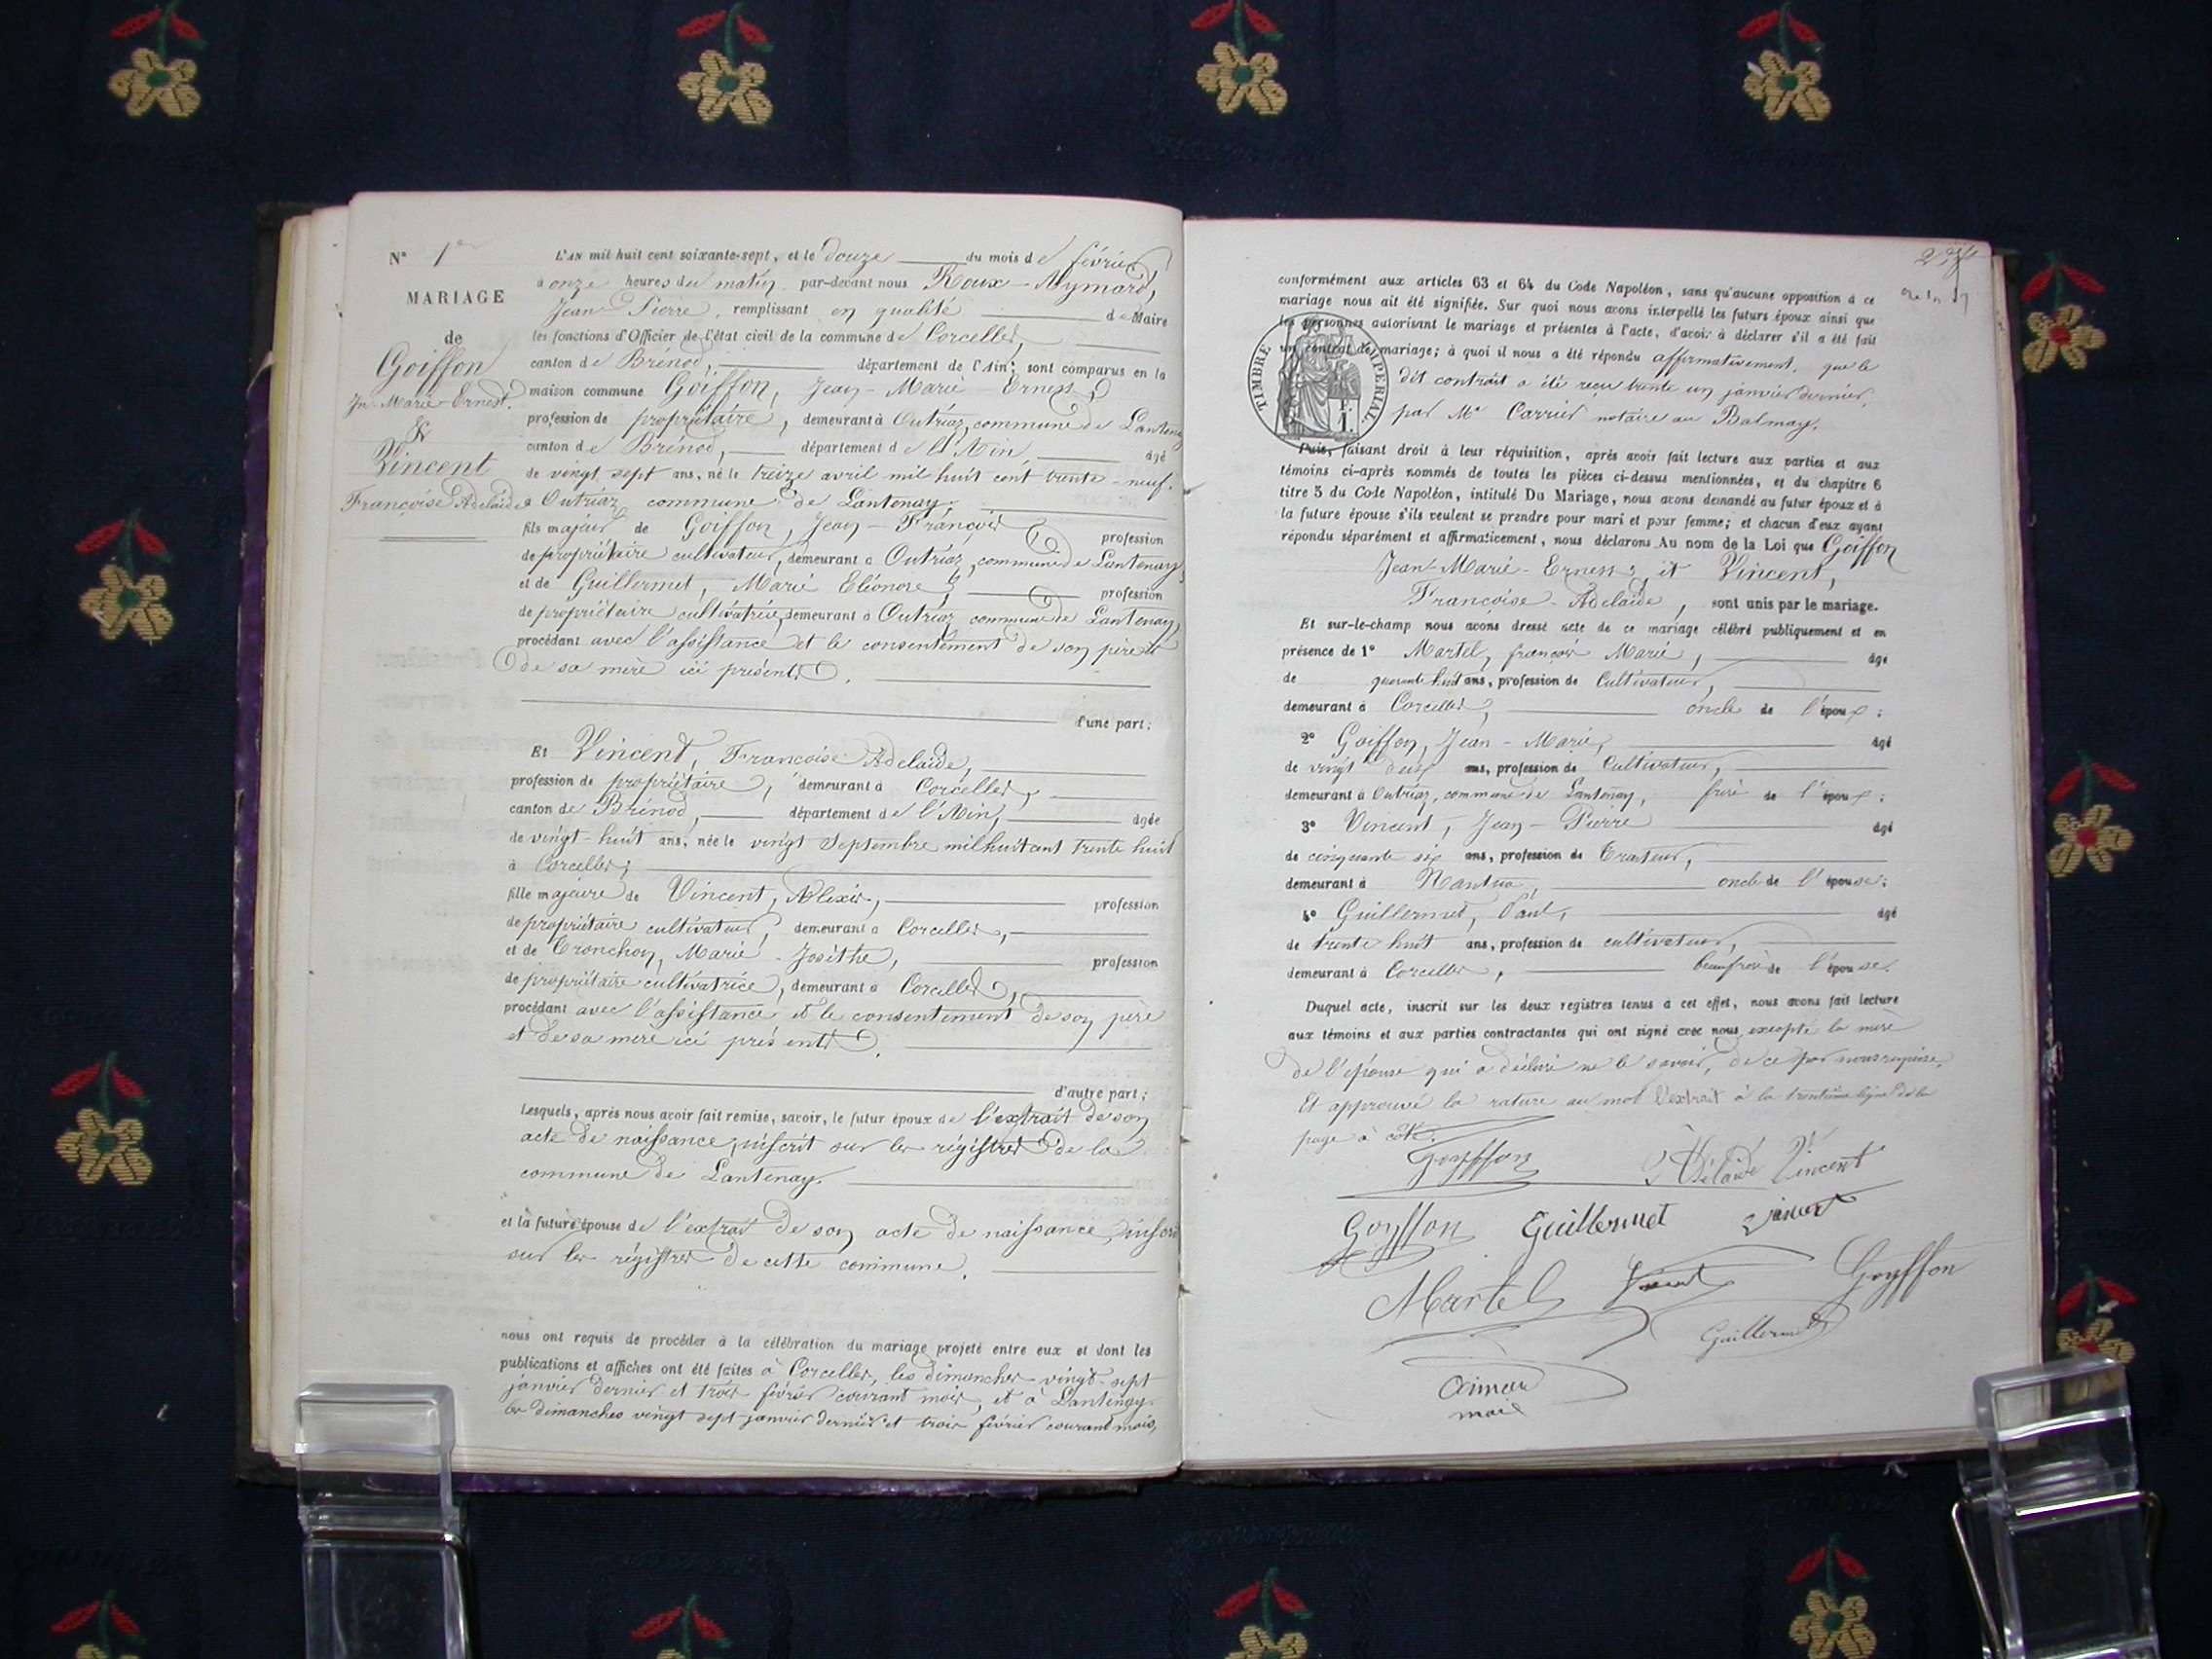 N° 1er
MARIAGE
de
Goiffon
Jn-Marie-Ernest.
&
Vincent
Françoise Adelaide
L'AN mil huit cent soixante-sept, et le douze du mois de février
à onze heures du matin par-devant nous Roux-Aymard,
Jean Pierre, remplissant en qualité de Maire
les fonctions d'Officier de l'état civil de la commune de Corcelles,
canton de Brénod, département de l'Ain; sont comparus en la
maison commune Goiffon, Jean-Marie Ernest,
profession de propriétaire, demeurant à Outriaz, commune de Lantenay
canton de Brénod, département de l'Ain, âgé
de vingt sept ans, né le treize avril mil huit cent trente-neuf.
à Outriaz commune de Lantenay
fils majeur de Goiffon, Jean-François profession
de propriétaire cultivateur, demeurant à Outriaz, commune de Lantenay,
et de Guillermet, Marie Eléonore, profession
de propriétaire cultivatrice, demeurant à Outriaz commune de Lantenay,
procédant avec l'assistance et le consentement de son père et
de sa mère ici présents.
d'une part;
Et Vincent, Françoise Adelaide,
profession de propriétaire, demeurant à Corcelles,
canton de Brénod, département de l'Ain, âgée
de vingt-huit ans, née le vingt Septembre mil huit cent trente huit
à Corcelles,
fille majeure de Vincent, Alexis, profession
de propriétaire cultivateur, demeurant à Corcelles,
et de Tronchon, Marie-Josèthe, profession
de propriétaire cultivatrice, demeurant à Corcelles,
procédant avec l'assistance et le consentement de son père
et de sa mère ici présents.
d'autre part;
Lesquels, après nous avoir fait remise, savoir, le futur époux de l'extrait de son
acte de naissance, inscrit sur les régistres de la
commune de Lantenay.
et la future épouse de l'extrait de son acte de naissance, inscrit
sur les régistres de cette commune.
nous ont requis de procéder à la célébration du mariage projeté entre eux et dont les
publications et affiches ont été faites à Corcelles, les dimanches vingt-sept
janvier dernier et trois février courant mois, et à Lantenay
les dimanches vingt sept janvier dernier et trois février courant mois,
conformément aux articles 63 et 64 du Code Napoléon, sans qu'aucune opposition à ce
mariage nous ait été signifiée. Sur quoi nous avons interpellé les futurs époux ainsi que
les personnes autorisant le mariage et présentes à l'acte, d'avoir à déclarer s'il a été fait
un contrat de mariage; à quoi il nous a été répondu affirmativement, que le
dit contrait a été reçu trente un janvier dernier,
par Me Carrier notaire au Balmay.
TIMBRE IMPERIAL
1 F.
Puis, faisant droit à leur réquisition, après avoir fait lecture aux parties et aux
témoins ci-après nommés de toutes les pièces ci-dessus mentionnées, et du chapitre 6
titre 5 du Code Napoléon, intitulé Du Mariage, nous avons demandé au futur époux et à
la future épouse s'ils veulent se prendre pour mari et pour femme; et chacun d'eux ayant
répondu séparément et affirmativement, nous déclarons Au nom de la Loi que Goiffon
Jean-Marie-Ernest, et Vincent,
Françoise-Adelaide, sont unis par le mariage.
Et sur-le-champ nous avons dressé acte de ce mariage célébré publiquement et en
présence de 1° Martel, françois Marie, âgé
de quarante huit ans, profession de Cultivateur,
demeurant à Corcelles, oncle de l'époux;
2° Goiffon, Jean-Marie, âgé
de vingt deux ans, profession de Cultivateur,
demeurant à Outriaz, commune de Lantenay, frère de l'époux;
3° Vincent, Jean-Pierre âgé
de cinquante six ans, profession de Traiteur,
demeurant à Nantua, oncle de l'épouse;
4° Guillermet, Paul, âgé
de trente huit ans, profession de cultivateur,
demeurant à Corcelles, beau frère de l'épouse.
Duquel acte, inscrit sur les deux registres tenus à cet effet, nous avons fait lecture
aux témoins et aux parties contractantes qui ont signé avec nous, excepté la mère
de l'épouse qui a déclaré ne le savoir, de ce par nous requise.
Et approuvé la rature au mot l'extrait à la trentième ligne de la
page à côté.
Goyffon
Adélaide Vincent
Goyffon Guillermet Vincent
Martel Vincent Goyffon
Guillermet